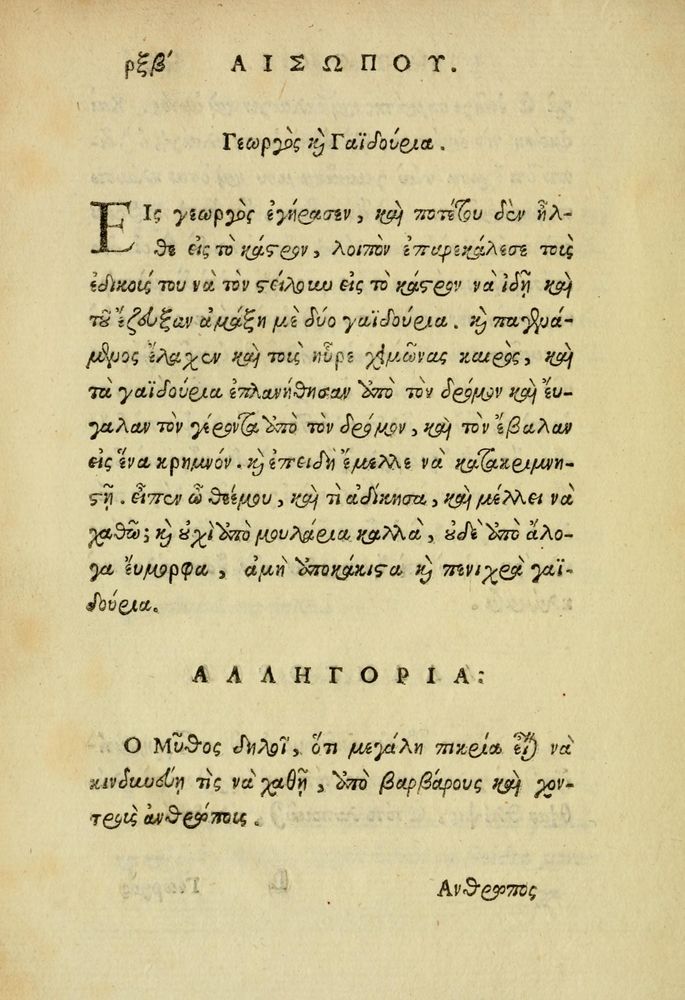 ρξβʹ ΑΙΣΩΠΟΥ.
Γεωργὸς κὶ Γαϊδούρια.
ΕΙς γεωργὸς ἐγήρασεν, καὶ ποτέτου δὲν ἦλ-
θε εἰς τὸ κάστρον, λοιπὸν ἐπαρεκάλεσε τοὺς
ἐδικούς του νὰ τὸν στείλουν εἰς τὸ κάστρον νὰ ἰδῇ καὶ
τοῦ ἔζευξαν ἁμάξη μὲ δύο γαϊδούρια. κὶ παγαινά-
μενος ἔλαχεν καὶ τοὺς ηὗρε χειμῶνας καιρὸς, καὶ
τὰ γαϊδούρια ἐπλανήθησαν ἀπὸ τὸν δρόμον καὶ εὔ-
γαλαν τὸν γέροντα ἀπὸ τὸν δρόμον, καὶ τὸν ἔβαλαν
εἰς ἕνα κρημνόν. κὶ ἐπειδὴ ἔμελλε νὰ κατακριμνη-
στῇ. εἶπεν ὦ θεέμου, καὶ τὶ ἀδίκησα, καὶ μέλλει νὰ
χαθῶ; κὶ οὐχὶ ἀπὸ μουλάρια καλλὰ, οὐδὲ ἀπὸ ἄλο-
γα εὔμορφα, ἀμὴ ἀποκάκιστα κὶ πενιχρὰ γαϊ-
δούρια.
ΑΛΛΗΓΟΡΙΑ:
Ο Μῦθος δηλοῖ, ὅτι μεγάλη πικρία εἶναι νὰ
κινδυνεύῃ τὶς νὰ χαθῇ, ἀπὸ βαρβάρους καὶ χον-
τροὺς ἀνθρώπους.
Ανθρωπος